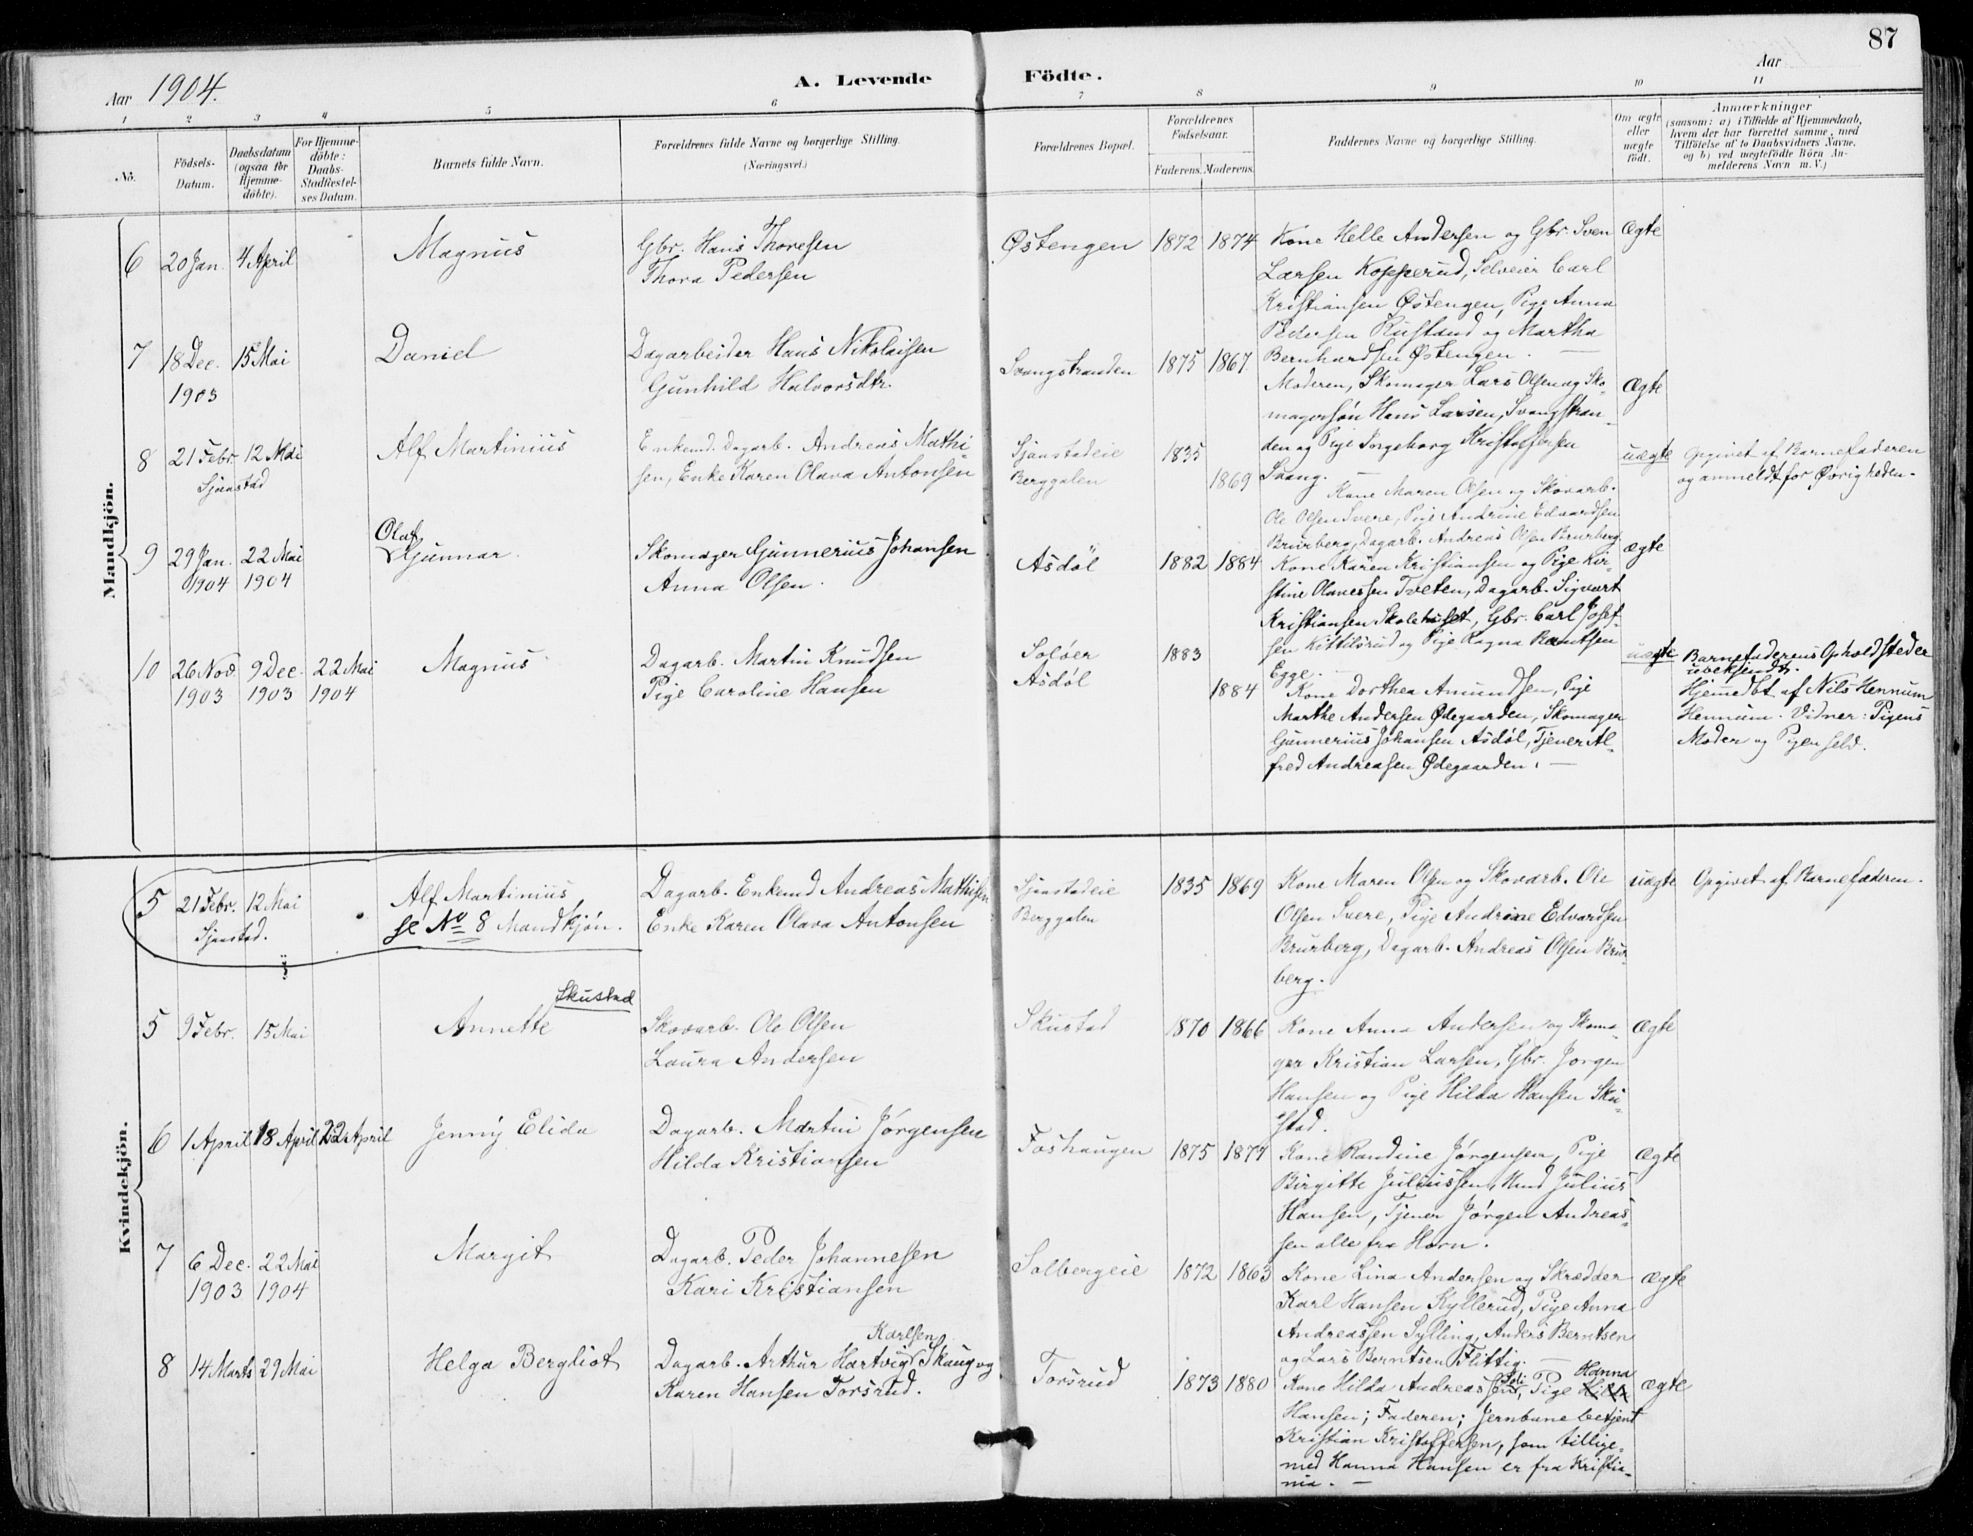 87
Aar 1904.
A. Levende Födte.
Aar
1 2 3 4 5 6 7 8 9 10 11
No.
Födsels-
Datum.
Daabsdatum
(ogsaa for
Hjemme-
döbte).
For Hjemme-
döbte:
Daabs-
Stadfæstel-
ses Datum.
Barnets fulde Navn.
Forældrenes fulde Navne og borgerlige Stilling.
(Næringsvei.)
Forældrenes Bopæl.
Forældrenes
Födselsaar.
Faderens. Moderens.
Faddernes Navne og borgerlige Stilling.
Om ægte
eller
uægte
födt.
Anmærkninger
(saasom: a) i Tilfælde af Hjemmedaab,
hvem der har forrettet samme, med
Tilföielse af to Daabsvidners Navne,
og b) ved uægtefödte Börn An-
melderens Navn m. V.)
Mandkjön.
6 20 Jan. 4 April
Magnus
Gbr. Hans Thoresen
Thora Pedersen
Østengen 1872 1874
Kone Helle Andersen og Gbr. Sven
Larsen Kopperud, Selveier Carl
Kristiansen Østengen, Pige Anna
Pedersen Rustand og Martha
Bernhardsen Østengen. —
Ægte
7 18 Dec. 15 Mai
1903
Daniel
Dagarbeider Hans Nikolaisen
Gunhild Halvorsdtr.
Svangstranden 1875 1867
Moderen, Skomager Lars Olsen og Sko-
magersøn Hans Larsen, Svangstran-
den og Pige Ingeborg Kristoffersen
Svang. —
Ægte
8 21 Febr. 12 Mai
Sjaastad
Alf Martinius
Enkemd. Dagarb. Andreas Mathi
sen, Enke Karen Olava Antonsen
Sjaastadeie 1835
Berggalen 1869
Kone Maren Olsen og Skovarb.
Ole Olsen Svere, Pige Andrine Edvardsen
Brurberg, Dagarb. Andreas Olsen Brurberg
uægte
Opgivet af Barnefaderen
og anmeldt for Øvrigheden.
9 29 Jan. 22 Mai
1904 1904
Olaf
Gunnar
Skomager Gunnerius Johansen
Anna Olsen.
Asdøl 1882 1884
Kone Karen Kristiansen og Pige Kir-
stine Olavessen Tveten, Dagarb. Sigvart
Kristiansen Skolehuset, Gbr. Carl Josef-
sen Kittilsrud og Pige Ragna Berntsen
Egge. —
Ægte
10 26 Nov. 9 Dec. 22 Mai
1903 1903 1904
Magnus
Dagarb. Martin Knudsen
Pige Caroline Hansen
Soløer 1883
Asdøl 1884
Kone Dorthea Amundsen, Pige
Marthe Andersen Ødegaarden, Skomager
Gunnerius Johansen Asdøl, Tjener Al-
fred Andreasen Ødegaarden. —
uægte
Barnefaderens Opholdssteder
ubekjendt.
Hjemmedbt af Nils Hennum
Hennum. Vidner: Pigens
Moder og Pigen selv.
Kvindekjön.
5 21 Febr. 12 Mai
Sjaastad.
Alf Martinius
se No 8 Mandkjön.
Dagarb. Enkemd Andreas Mathisen
Enke Karen Olava Antonsen
Sjaastadeie 1835 1869
Berggalen
Kone Maren Olsen og Skovarb. Ole
Olsen Svere, Pige Andrine Edvardsen
Brurberg, Dagarb. Andreas Olsen Brur-
berg.
uægte
Opgivet af Barnefaderen.
5 9 Febr. 15 Mai
Skustad
Annette
Skovarb. Ole Olsen
Laura Andersen
Skustad 1870 1866
Kone Anna Andersen og Skoma-
ger Kristian Larsen, Gbr. Jørgen
Hansen og Pige Hilda Hansen Sku-
stad.
Ægte
6 1 April 18 April 22 April
Jenny Elida
Dagarb. Martin Jørgensen
Hilda Kristiansen
Foshaugen 1875 1877
Kone Randine Jørgensen, Pige
Birgitte Juliussen, Und Julius
Hansen, Tjener Jørgen Andreas-
sen alle fra Horn.
Ægte
7 6 Dec. 22 Mai
1903 1904
Margit
Dagarb. Peder Johannesen
Kari Kristiansen
Solbergeie 1872 1863
Kone Lina Andersen og Skrædder
Karl Hansen Kyllerud, Pige Anna
Andreassen Sylling, Anders Berntsen
og Lars Berntsen Flittig. —
Ægte
8 14 Marts 29 Mai
Helga Bergliot
Karlsen
Dagarb. Arthur Hartvig Skaug og
Karen Hansen Torsrud.
Torsrud 1873 1880
Hanna
Kone Hilda Andreassen, Pige
Hansen; Faderen; Jernbanebetjent
Kristian Kristoffersen, som tillige-
med Hanna Hansen er fra Kristia-
nia. —
Ægte